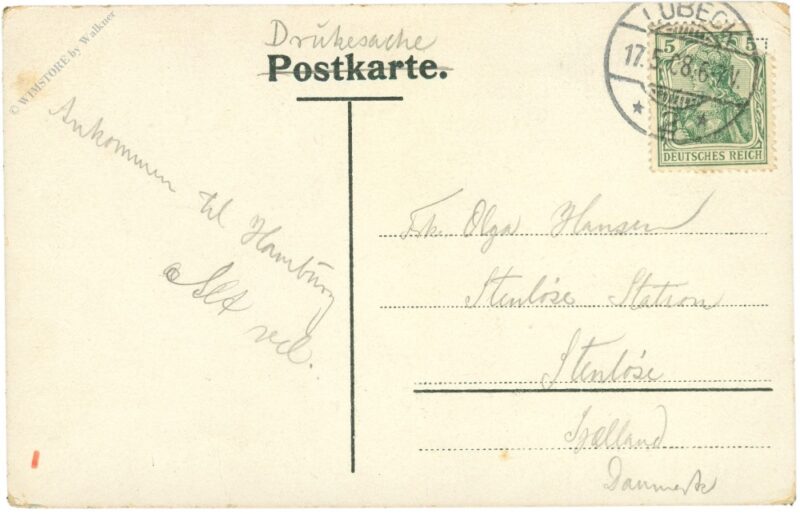 © WIMSTORE by Walkner
Drukesache
Postkarte.
LÜBECK
17.5.08.6-7N
* 2 *
5 5
DEUTSCHES REICH
Ankommen
til Hamburg
Alt vel.
Frk. Olga Hansen
Stenlöse Station
Stenlöse
Sjælland
Danmark